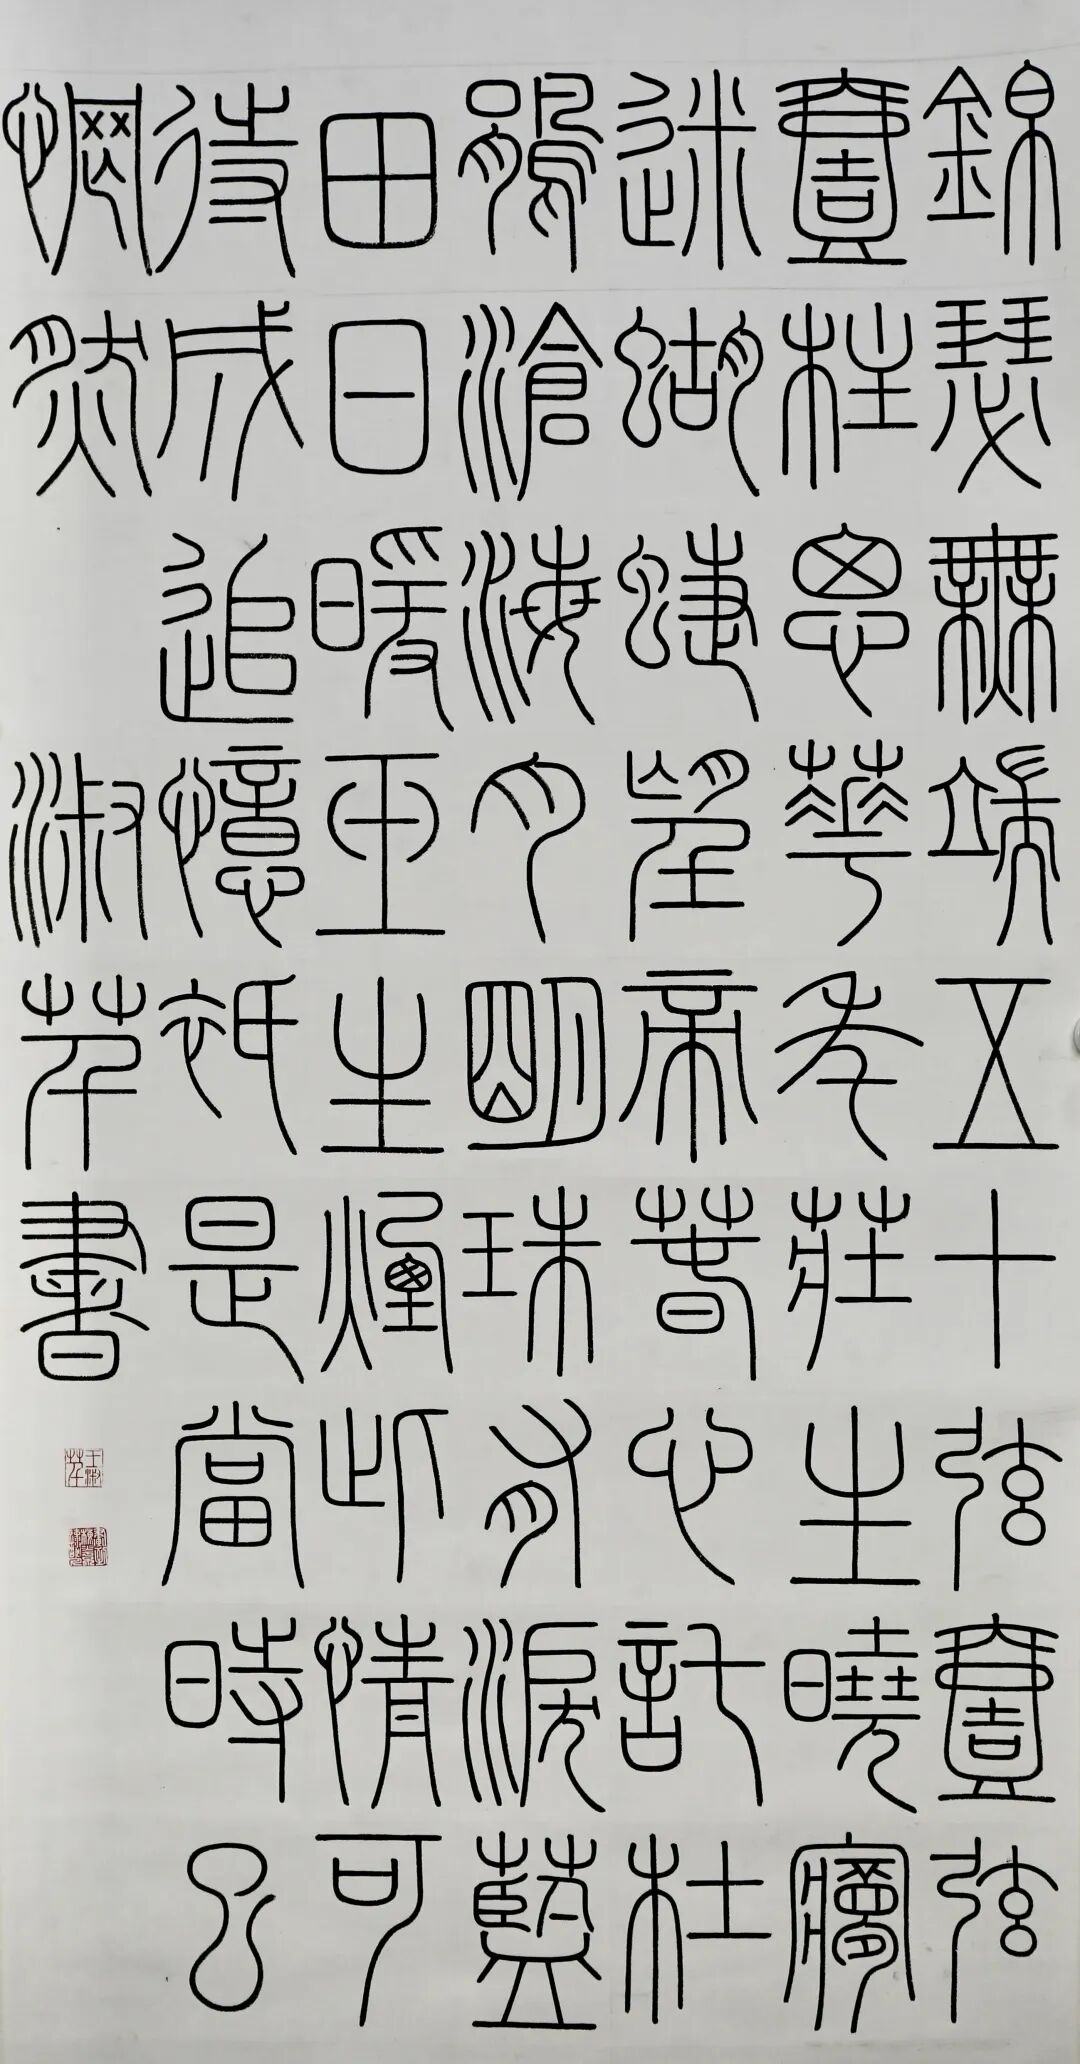 錦瑟無端五十弦壹弦
壹柱思華年莊生曉夢
迷蝴蝶望帝春心託杜
鵑滄海月明珠有淚藍
田日暖玉生煙此情可
待成追憶祇是當時已
惘然
淑書